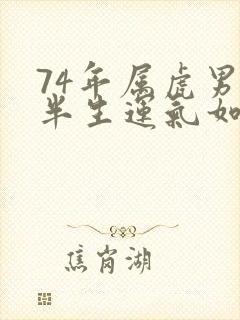 74年属虎男
半生运气如
焦岗湖